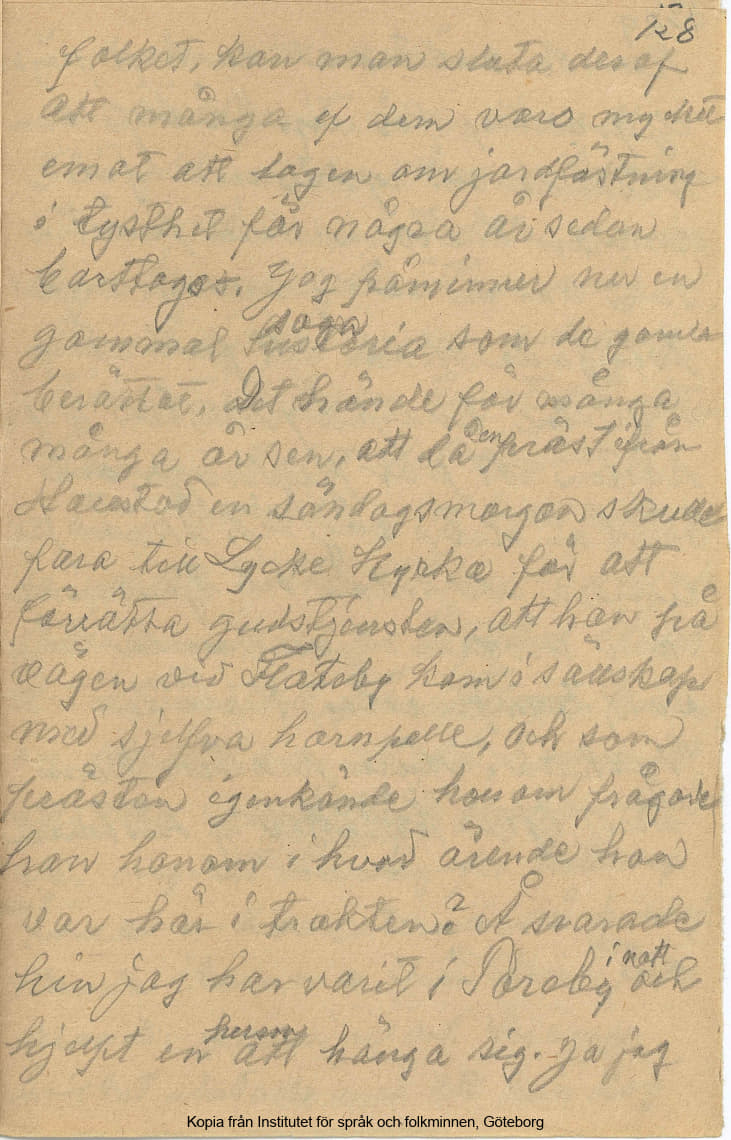 128
folket, kan man sluta deraf
att många af dem voro mycket
emot att lagen om jordfästning
i tysthet för några år sedan
borttogs. Jag påminner mer en
saga
gammal historia som de gamla
berättat. Det hände för många
många år sen, att då en präst ifrån
en söndagsmorgon skulle
fara till Lycke Kyrka för att
förrätta gudstjensten, att han på
vägen vid Flateby kom i sällskap
med sjelfva hornpelle, och som
prästen igenkände honom frågade
han honom i hvad ärende han
var här i trakten? Å svarade
i natt
hin jag har varit i och
hjelpt en att hänga sig. Ja jag
Kopia från Institutet för språk och folkminnen, Göteborg